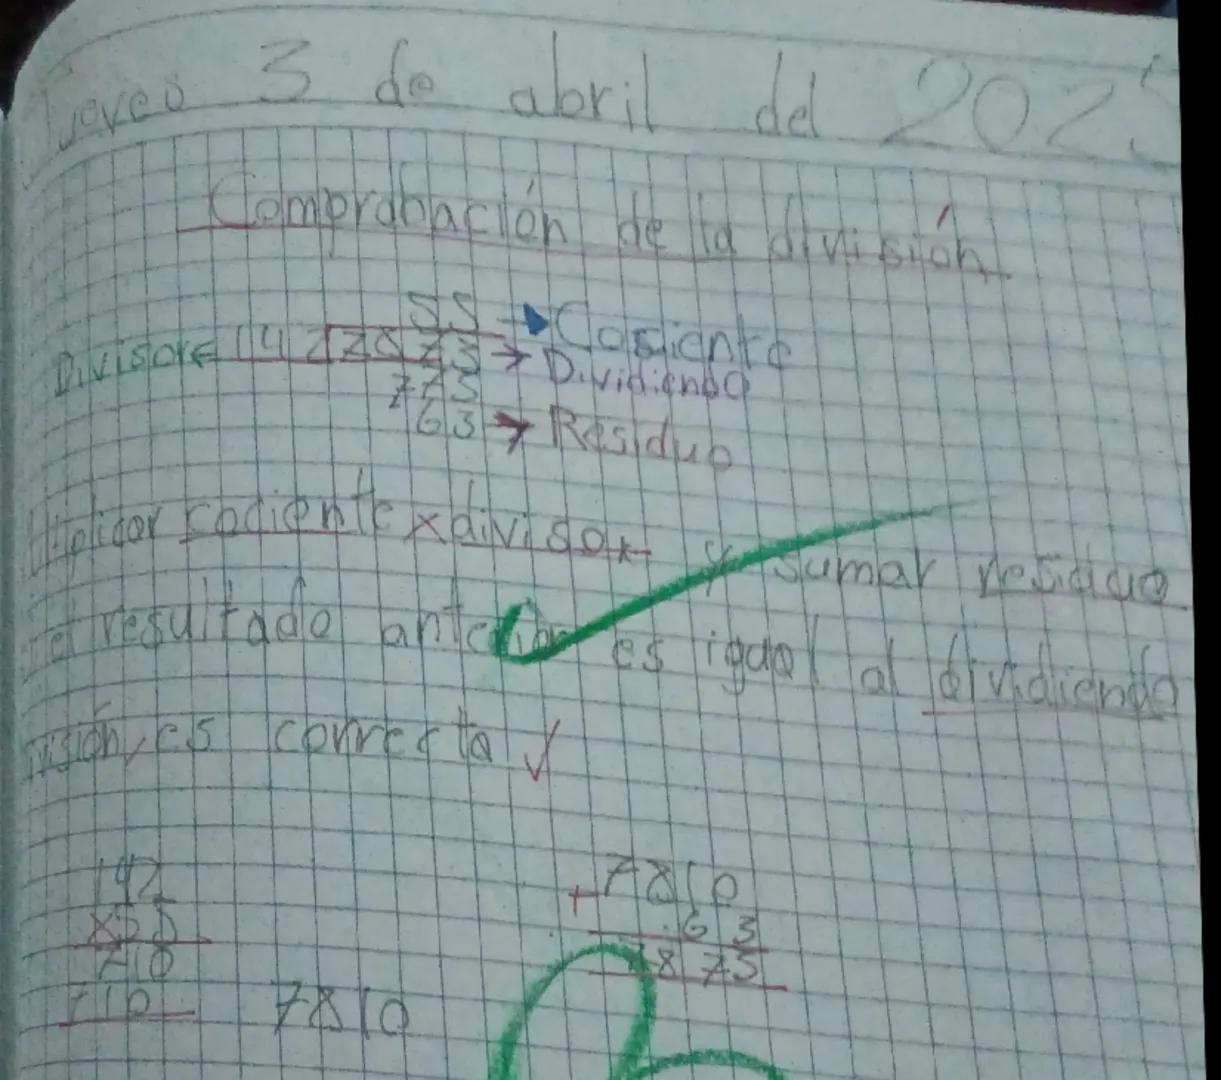 Jueves 3 de abril del 2025
Comprobación de la división
55 → Cosiente
Divisor ← 142 7873 → Dividiendo
773
63 → Residuo
tiplicar cociente x divisor y sumar residuo
el resultado anterior es igual al dividiendo
visión, es correcta ✓
142
x55
710
710 7810
7810
+ 63
7873